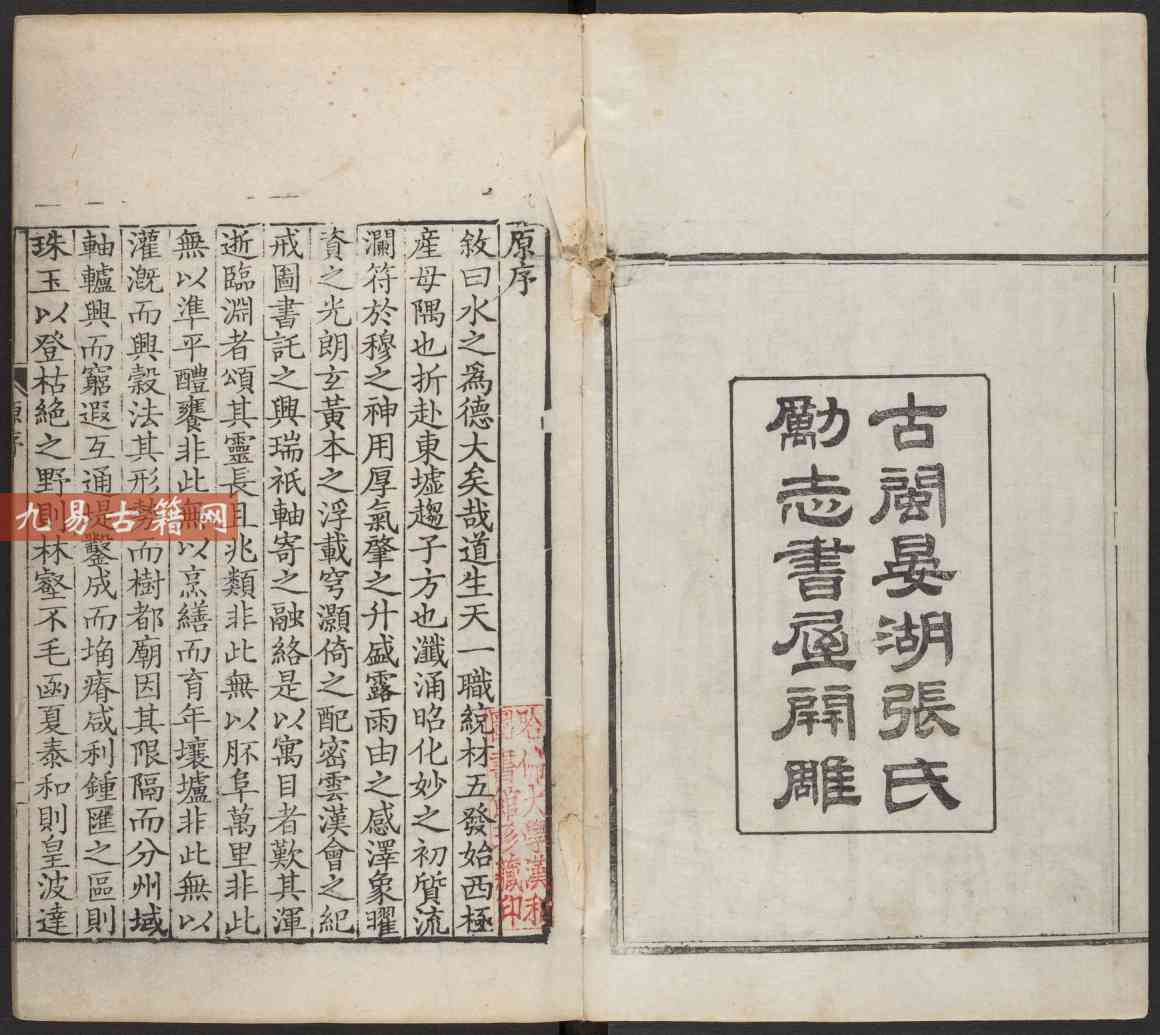 古閩晏湖張氏
勵志書屋開雕
原序
敘曰水之爲德大矣哉道生天一職統材五發始西極
産母隅也折赴東墟趨子方也瀸涌昭化妙之初質流
瀾符於穆之神用厚氣肇之升盛露雨由之感澤象曜
資之光朗玄黃本之浮載穹灝倚之配密雲漢會之紀
戒圖書託之興瑞祇軸寄之融絡是以寓目者歎其渾
逝臨淵者頌其靈長且兆類非此無以胚阜萬里非此
無以準平醴饔非此無以烹繕而育年壤壚非此無以
灌漑而興穀法其形勢而樹都廟因其限隔而分州域
軸轤興而窮遐互通堤鑿成而埆瘠咸利鍾匯之區則
珠玉以登枯絶之野則林壑不毛函夏泰和則皇波達
原序
一
哈佛大學漢和
圖書館珍藏印
九易古籍网